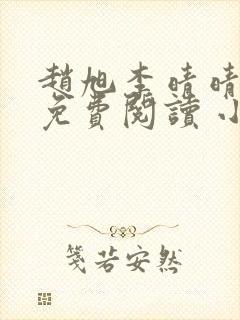 趙旭李晴晴
免費閱讀小
箋若安然